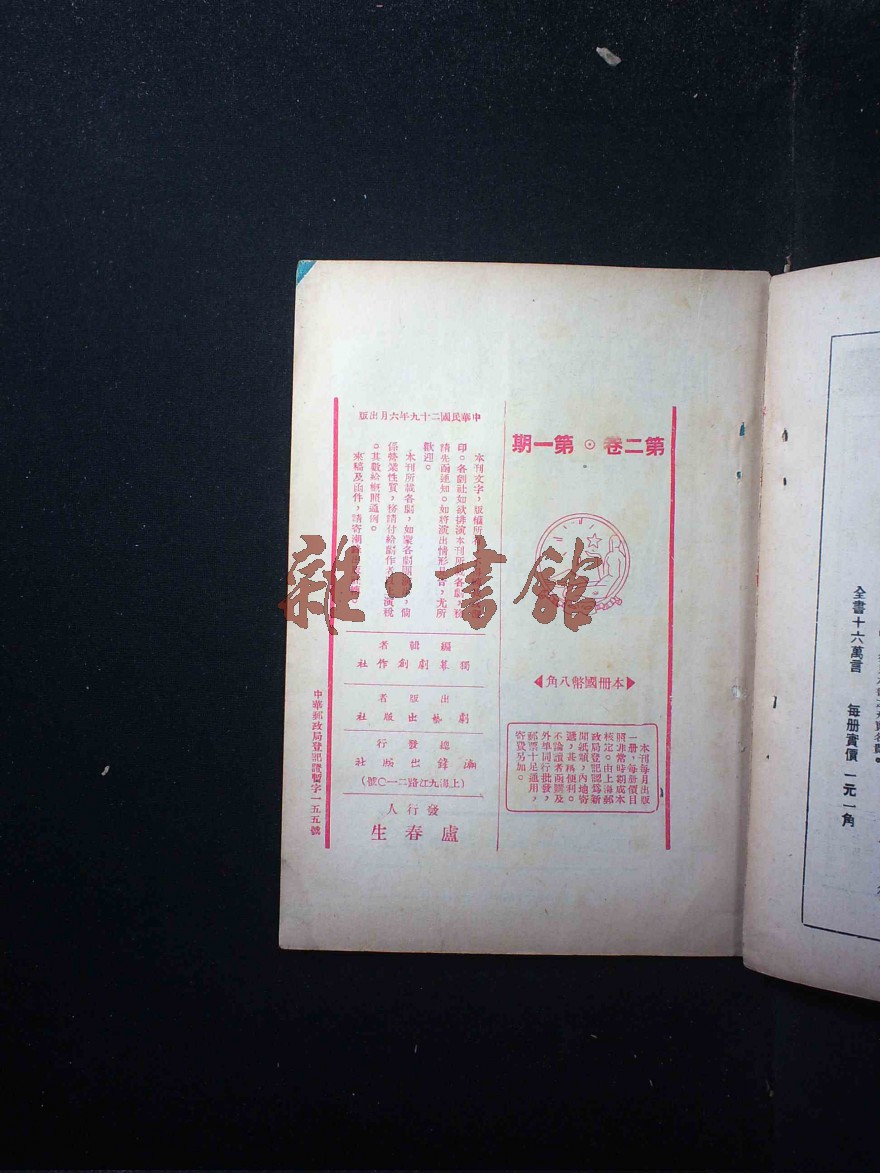 第二卷・第一期
本冊國幣八角
本刊每月出版
一册，每册價目
照非常時期成本
核定。由上海郵
政局登記認為新
聞紙類，內地寄
遞，甚爲便利。
不論讀者函購及
外埠同行批發，
郵票十足通用，
寄費另加。
中華民國二十九年六月出版
本刊文字，版權所
印。各劇社如欲排演本刊所 各劇，
請先函通知。如將演出情形 告，尤所
歡迎。
本刊所載各劇，如蒙各劇團 ，倘
係營業性質，務請付給劇作者 演稅
。其數給概照通例。
來稿及函件，請寄潮鋒出版社
編輯者
獨幕劇創作社
出版者
劇藝出版社
總發行
潮鋒出版社
（上海九江路二一〇號）
發行人
盧春生
中華郵政局登記證暫字一五五號
雜・書館
全書十六萬言 每册實價一元一角